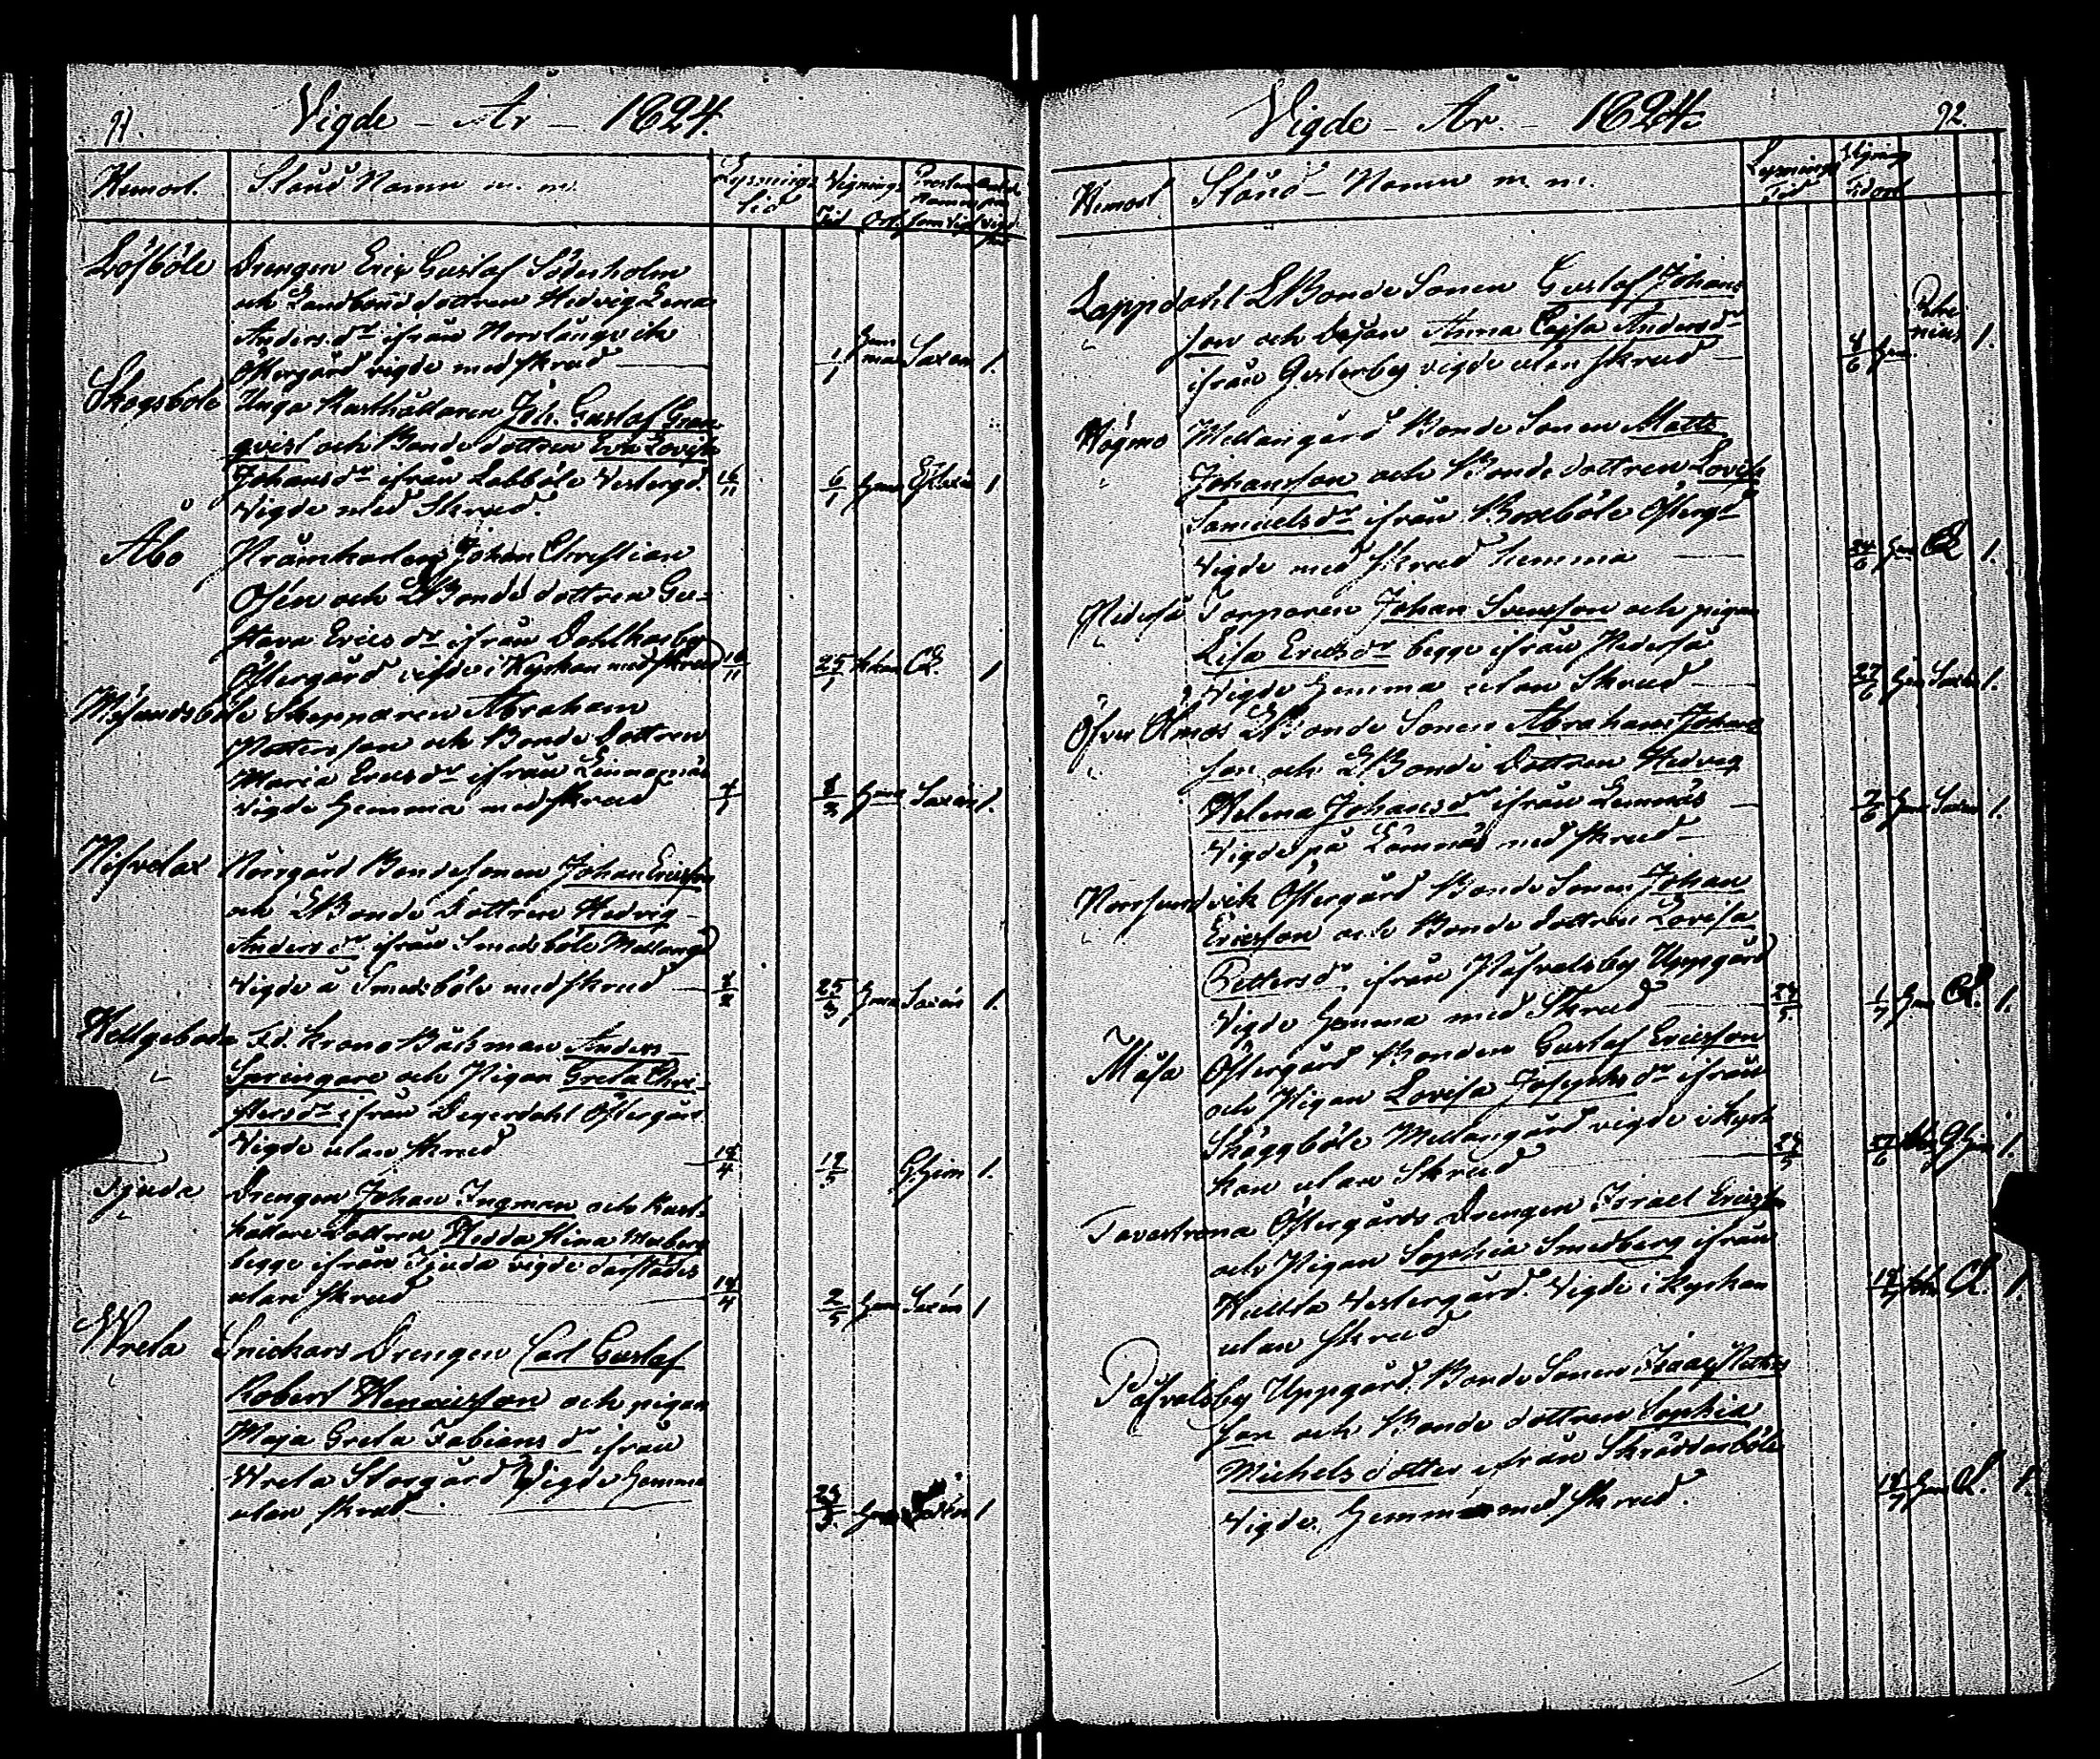 91.
Vigde – År – 1824.
Hemort. Stånd Namn m. m. Lysnings tid Vignings Tid Ort.
Löfböle Drengen Eric Gustaf Söderholm
och Landbonde dottren Hedvig Lena
Anders dr ifrån Norrlångvik
Östergård vigde med skrud 1/1 Hemma Saxen 1.
Skogsböle Unga Rusthållaren Joh. Gustaf Gran
qvist och Bonde dottren Eva Lovisa
Johans dr ifrån Lobböle Vestergd. 16/11 6/1 Hem 1
Vigde med Skrud.
Åbo Kramhandlaren Johan Christian
Osén och LBonde dottren Gu-
stava Erics dr ifrån Dahlkarby
Östergård vigde i Kyrkan med skrud 16/11 25/1 1
Skepparen Abraham
Mattersson och Bonde Dottren
Maria Erics dr ifrån
vigde Hemma med skrud 8/3 Hem Saxén 1.
Norrgård Bondesonen Johan Ericsson
och LBonde Dottren Hedvig
Anders dr ifrån Smedsböle Mellang
Vigde å Smedsböle med skrud 25/3 Hem Saxén 1.
Helgeboda Fd. Krono Båtsman Anders
Springare och Pigan Greta Chri-
sters dr ifrån Degerdahl Östergård
Vigde utan skrud 18/4 19/5 1.
Tjuda Drengen Johan Ingman och Rust-
hållare Dottren Hedda Stina
begge ifrån Tjuda vigde därstädes
utan skrud 18/4 2/5 Hem Saxén 1
Wreta Snickars Drengen Carl Gustaf
Robert Henricsson och pigan
Maja Greta Fabians dr ifrån
Wreta Storgård Vigde Hemma
utan skrud 23/5. Hem Saxén 1
Vigde – År. – 1824. 92.
Hemort Stånd – Namn m. m. Lysnings Tid Vignings Tid ort
Lappdahl LBonde Sonen Gustaf Johans
son och Anna Cajsa Anders dr
ifrån Gesterby vigde utan skrud 4/6 Hem. 1.
Högmo Mellangård Bonde Sonen Matts
Johansson och Bonde dottren Lovisa
Samuels dr ifrån Rosböle Östergd
Vigde med skrud hemma 24/6 Hem 1.
Pederså Torparen Johan Svensson och pigan
Lisa Erics dr begge ifrån Pederså
Vigde Hemma utan Skrud 27/6 Hem Saxén 1.
Öfver Ölmos LBonde Sonen Abraham Johans
son och LBonde Dottren Hedvig
Helena Johans dr ifrån Lemnäs
Vigde på Lämnäs med skrud 1.
Norrsundvik Östergård Bonde Sonen Johan
Ericsson och Bonde dottren Lovisa
Petters dr ifrån Påfvalsby Uppgård
Vigde Hemma med Skrud 1/7 Hem 1.
Måsa Östergård Bonden Gustaf Ericsson
och Pigan Lovisa Josephs dr ifrån
Skäggböle Mellangård vigde i Kyr
kan utan Skrud 1.
Tavastrona Östergårds Drengen Israel Ericss
och Pigan Sophia Smedberg ifrån
Hullta Vestergård. Vigde i kyrkan
utan skrud 1.
Påfvalsby Uppgård. Bonde Sonen Isaac Matts
son och Bonde dottren Sophia
Michels dotter ifrån Skräddarböle
Vigde Hemma med skrud. 18/7 Hem 1.